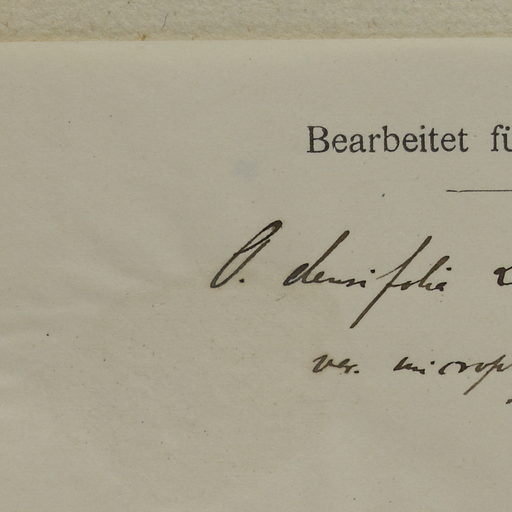 Bearbeitet fü
O. densifolia
var. microp